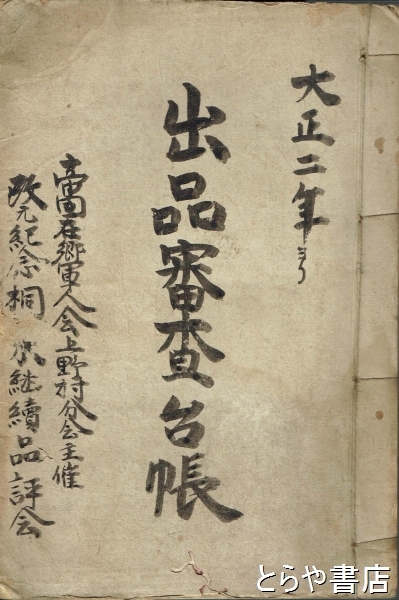 大正二年より
出品審査台帳
帝国在郷軍人会上野村分会主催
改元紀念桐 木継續品評会
とらや書店